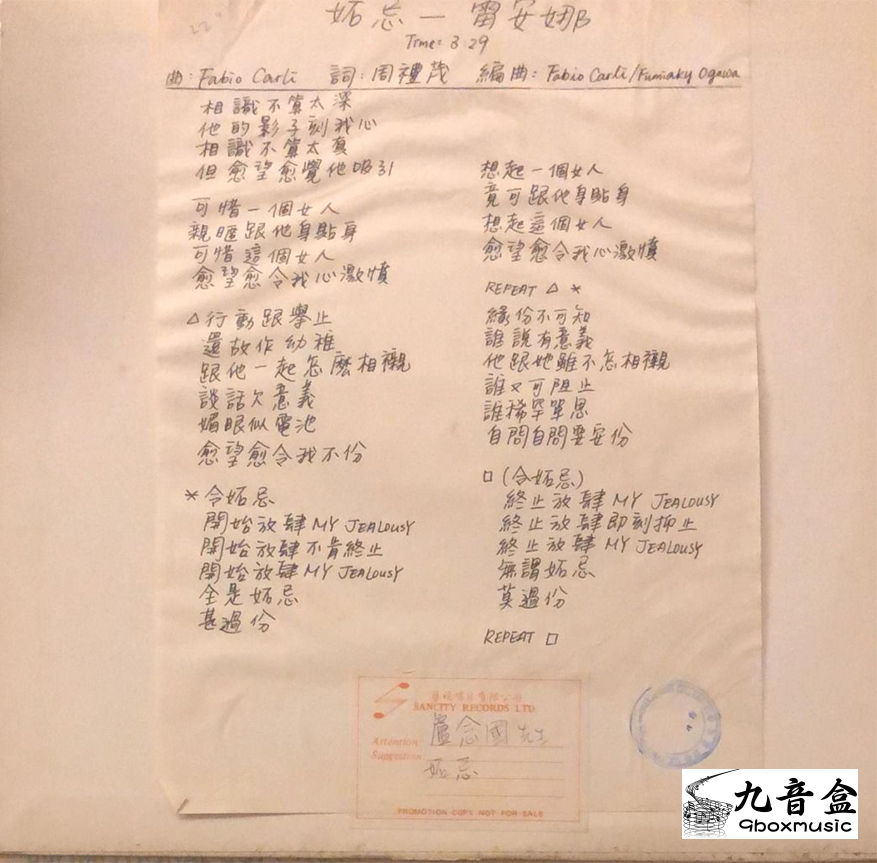 妬忌 — 雷安娜
Time: 3:29
曲: Fabio Carli 詞: 周禮茂 編曲: Fabio Carli/Fumiaky Ogawa
相識不算太深
他的影子刻我心
相識不算太真
但愈望愈覺他吸引
可惜一個女人
親暱跟他身貼身
可惜這個女人
愈望愈令我心激憤
△行動跟舉止
還故作幼稚
跟他一起怎麼相襯
談話欠意義
媚眼似電池
愈望愈令我不份
*令妬忌
開始放肆MY JEALOUSY
開始放肆不肯終止
開始放肆MY JEALOUSY
全是妬忌
甚過份
想起一個女人
竟可跟他身貼身
想起這個女人
愈望愈令我心激憤
REPEAT △ *
緣份不可知
誰說有意義
他跟她雖不怎相襯
誰又可阻止
誰稀罕單思
自問自問要安份
□(令妬忌)
終止放肆 MY JEALOUSY
終止放肆即刻抑止
終止放肆 MY JEALOUSY
無謂妬忌
莫過份
REPEAT □
SANCITY RECORDS LTD.
Attention 盧念國 先生
Suggestion 妬忌
PROMOTION COPY NOT FOR SALE
九音盒
9boxmusic